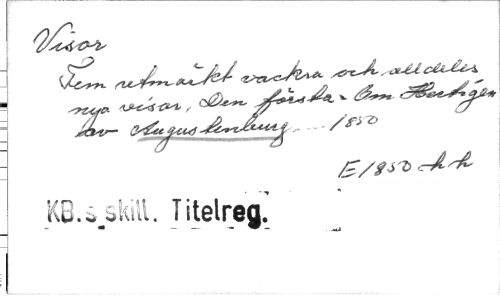 Visor
Fem utmärkt vackra och alldeles
nya visor. Den första - Om Hertigen
av Augustenburg... 1850
E1850 h h
KB.s skill. Titelreg.